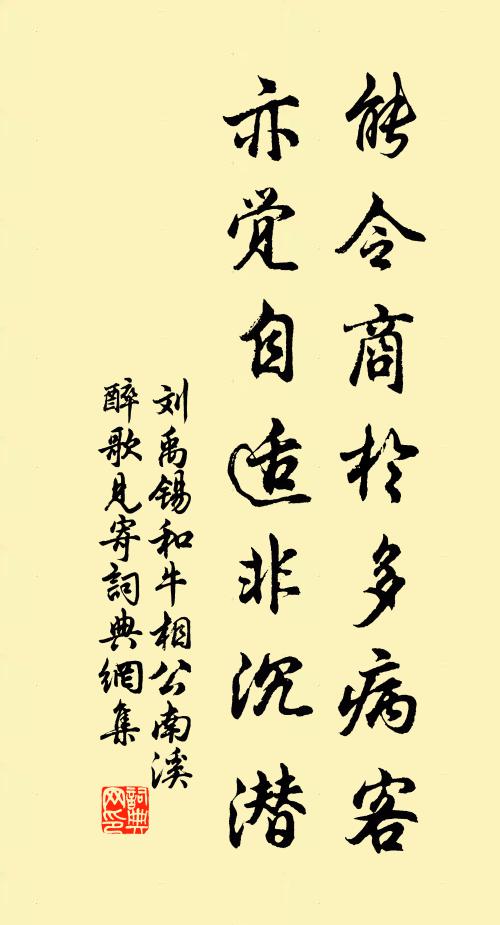 能令商於多病客
亦觉自适非沉潜
刘禹锡和牛相公南溪
醉歌见寄詞典網集
詞典网印